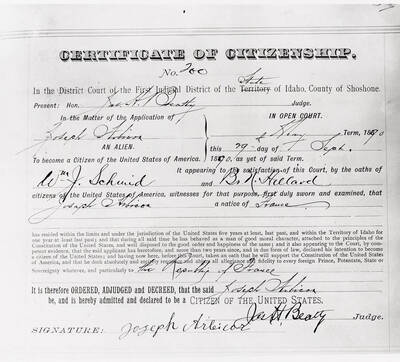 CERTIFICATE OF CITIZENSHIP.
No. 200
In the District Court of the First Judicial District of the Territory State of Idaho, County of Shoshone.
Present: Hon. Jas. H. Beatty Judge.
In the Matter of the Application of
IN OPEN COURT.
Joseph
Term, 1890
AN ALIEN.
this 29 day of Sept.
To become a Citizen of the United States of America.
1890, as yet of said Term.
It appearing to the satisfaction of this Court, by the oaths of
Wm J. Schmid and B. K.
citizens of the United States of America, witnesses for that purpose, first duly sworn and examined, that
Joseph a native of France
has resided within the limits and under the jurisdiction of the United States five years at least, last past, and within the Territory of Idaho for
one year at least last past; and that during all said time he has behaved as a man of good moral character, attached to the principles of the
Constitution of the United States, and well disposed to the good order and happiness of the same; and it also appearing to the Court, by
evidence, that the said applicant has heretofore, and more than two years since, and in due form of law, declared his intention to become
a citizen of the United States; and having now here, before this Court, taken an oath that he will support the Constitution of the United States
of America, and that he doth absolutely and entirely renounce and abjure all allegiance and fidelity to every foreign Prince, Potentate, State or
Sovereignty whatever, and particularly to the Republic of France
It is therefore ORDERED, ADJUDGED and DECREED, that the said Joseph
be, and is hereby admitted and declared to be a CITIZEN OF THE UNITED STATES.
Jas H. Beatty Judge.
SIGNATURE: Joseph